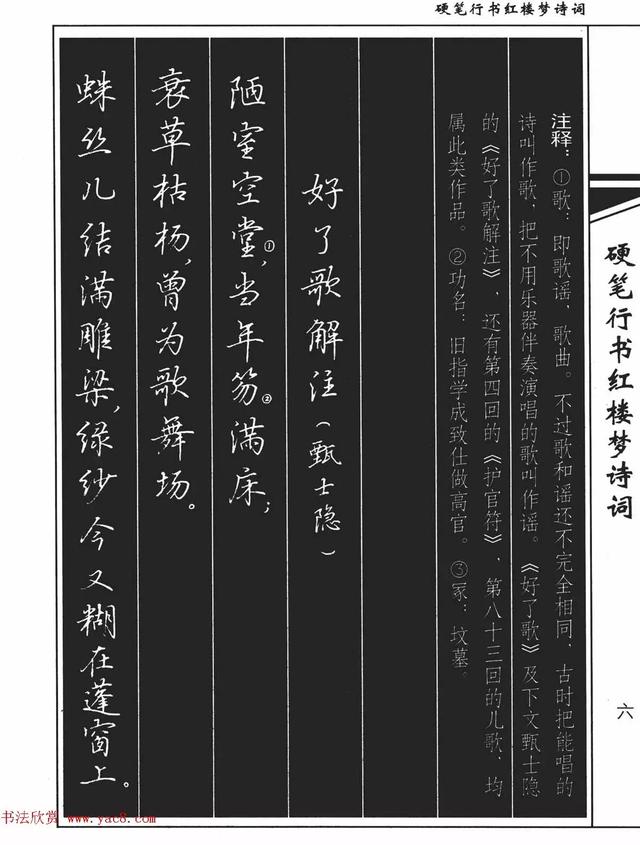 硬笔行书红楼梦诗词
硬笔行书红楼梦诗词
六
注释：①歌：即歌谣，歌曲。不过歌和谣还不完全相同，古时把能唱的
诗叫作歌，把不用乐器伴奏演唱的歌叫作谣。《好了歌》及下文甄士隐
的《好了歌解注》，还有第四回的《护官符》，第八十三回的儿歌，均
属此类作品。②功名：旧指学成致仕做高官。③冢：坟墓。
好了歌解注（甄士隐）
陋室空堂①，当年笏②满床；
衰草枯杨，曾为歌舞场。
蛛丝儿结满雕梁，绿纱今又糊在蓬窗上。
书法欣赏 www.yac8.com